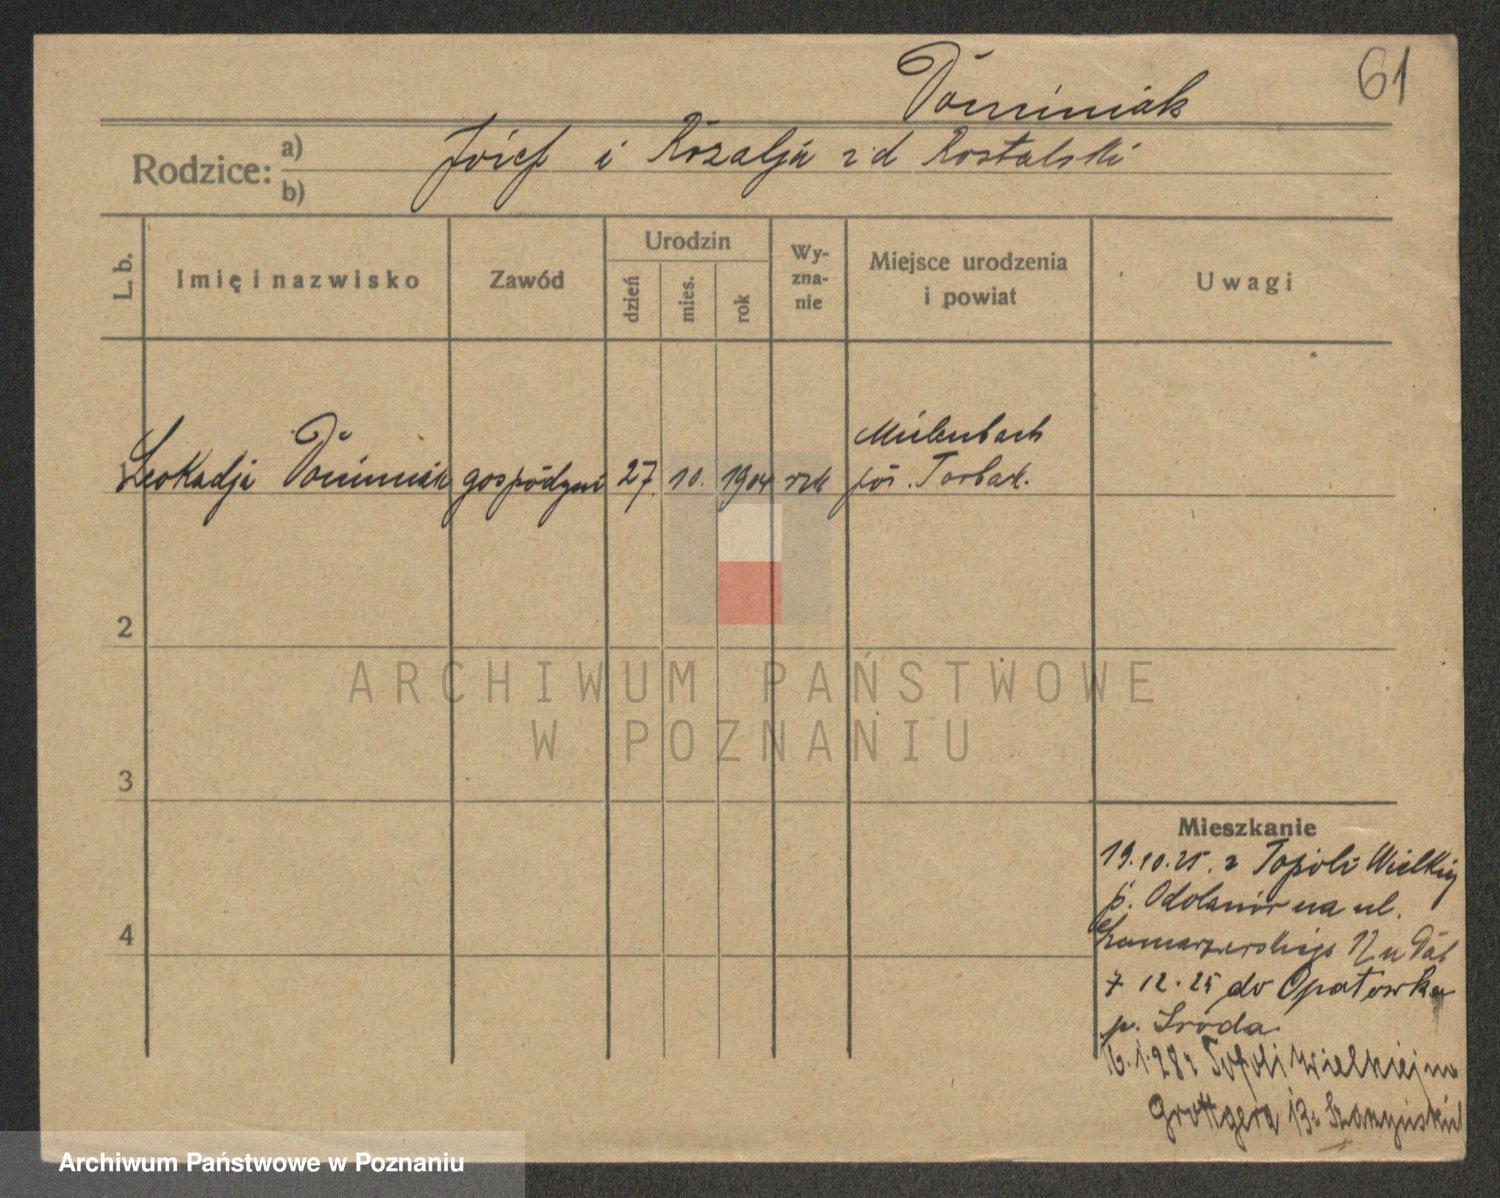 61
Dominiak
Rodzice: a) b)
Józef i Rozalja z d Rostalski
L. b.
Imię i nazwisko
Zawód
Urodzin
dzień
mies.
rok
Wy-
zna-
nie
Miejsce urodzenia
i powiat
Uwagi
1 Leokadja Dominiak gospodyni 27. 10. 1904 rzk
pow. Torbak.
2
3
4
ARCHIWUM PAŃSTWOWE
W POZNANIU
Mieszkanie
19.10.25. z Topoli Wielkiej
p. Odolanów na ul.
17 u
7 12.25 do Opatówka
p. Środa
16.1.28 z Topoli Wielkiej na
Grottgera 13
Archiwum Państwowe w Poznaniu